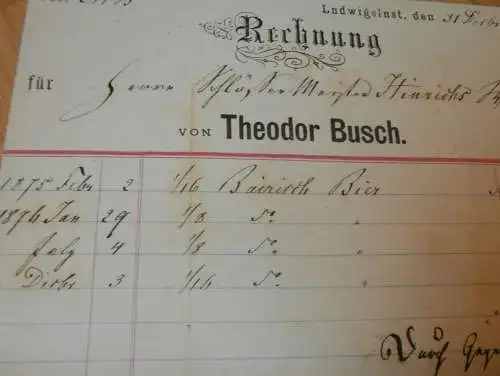 Ludwigslust, den 31 Decbr
Rechnung
für Herrn Schlösser Meister Hinrichs
VON Theodor Busch.
1875 Febr 2 1/16 Bairisch Bier
1876 Jan 29 1/8 do "
July 4 1/8 do "
Decbr 3 1/16 do "
Durch Gege